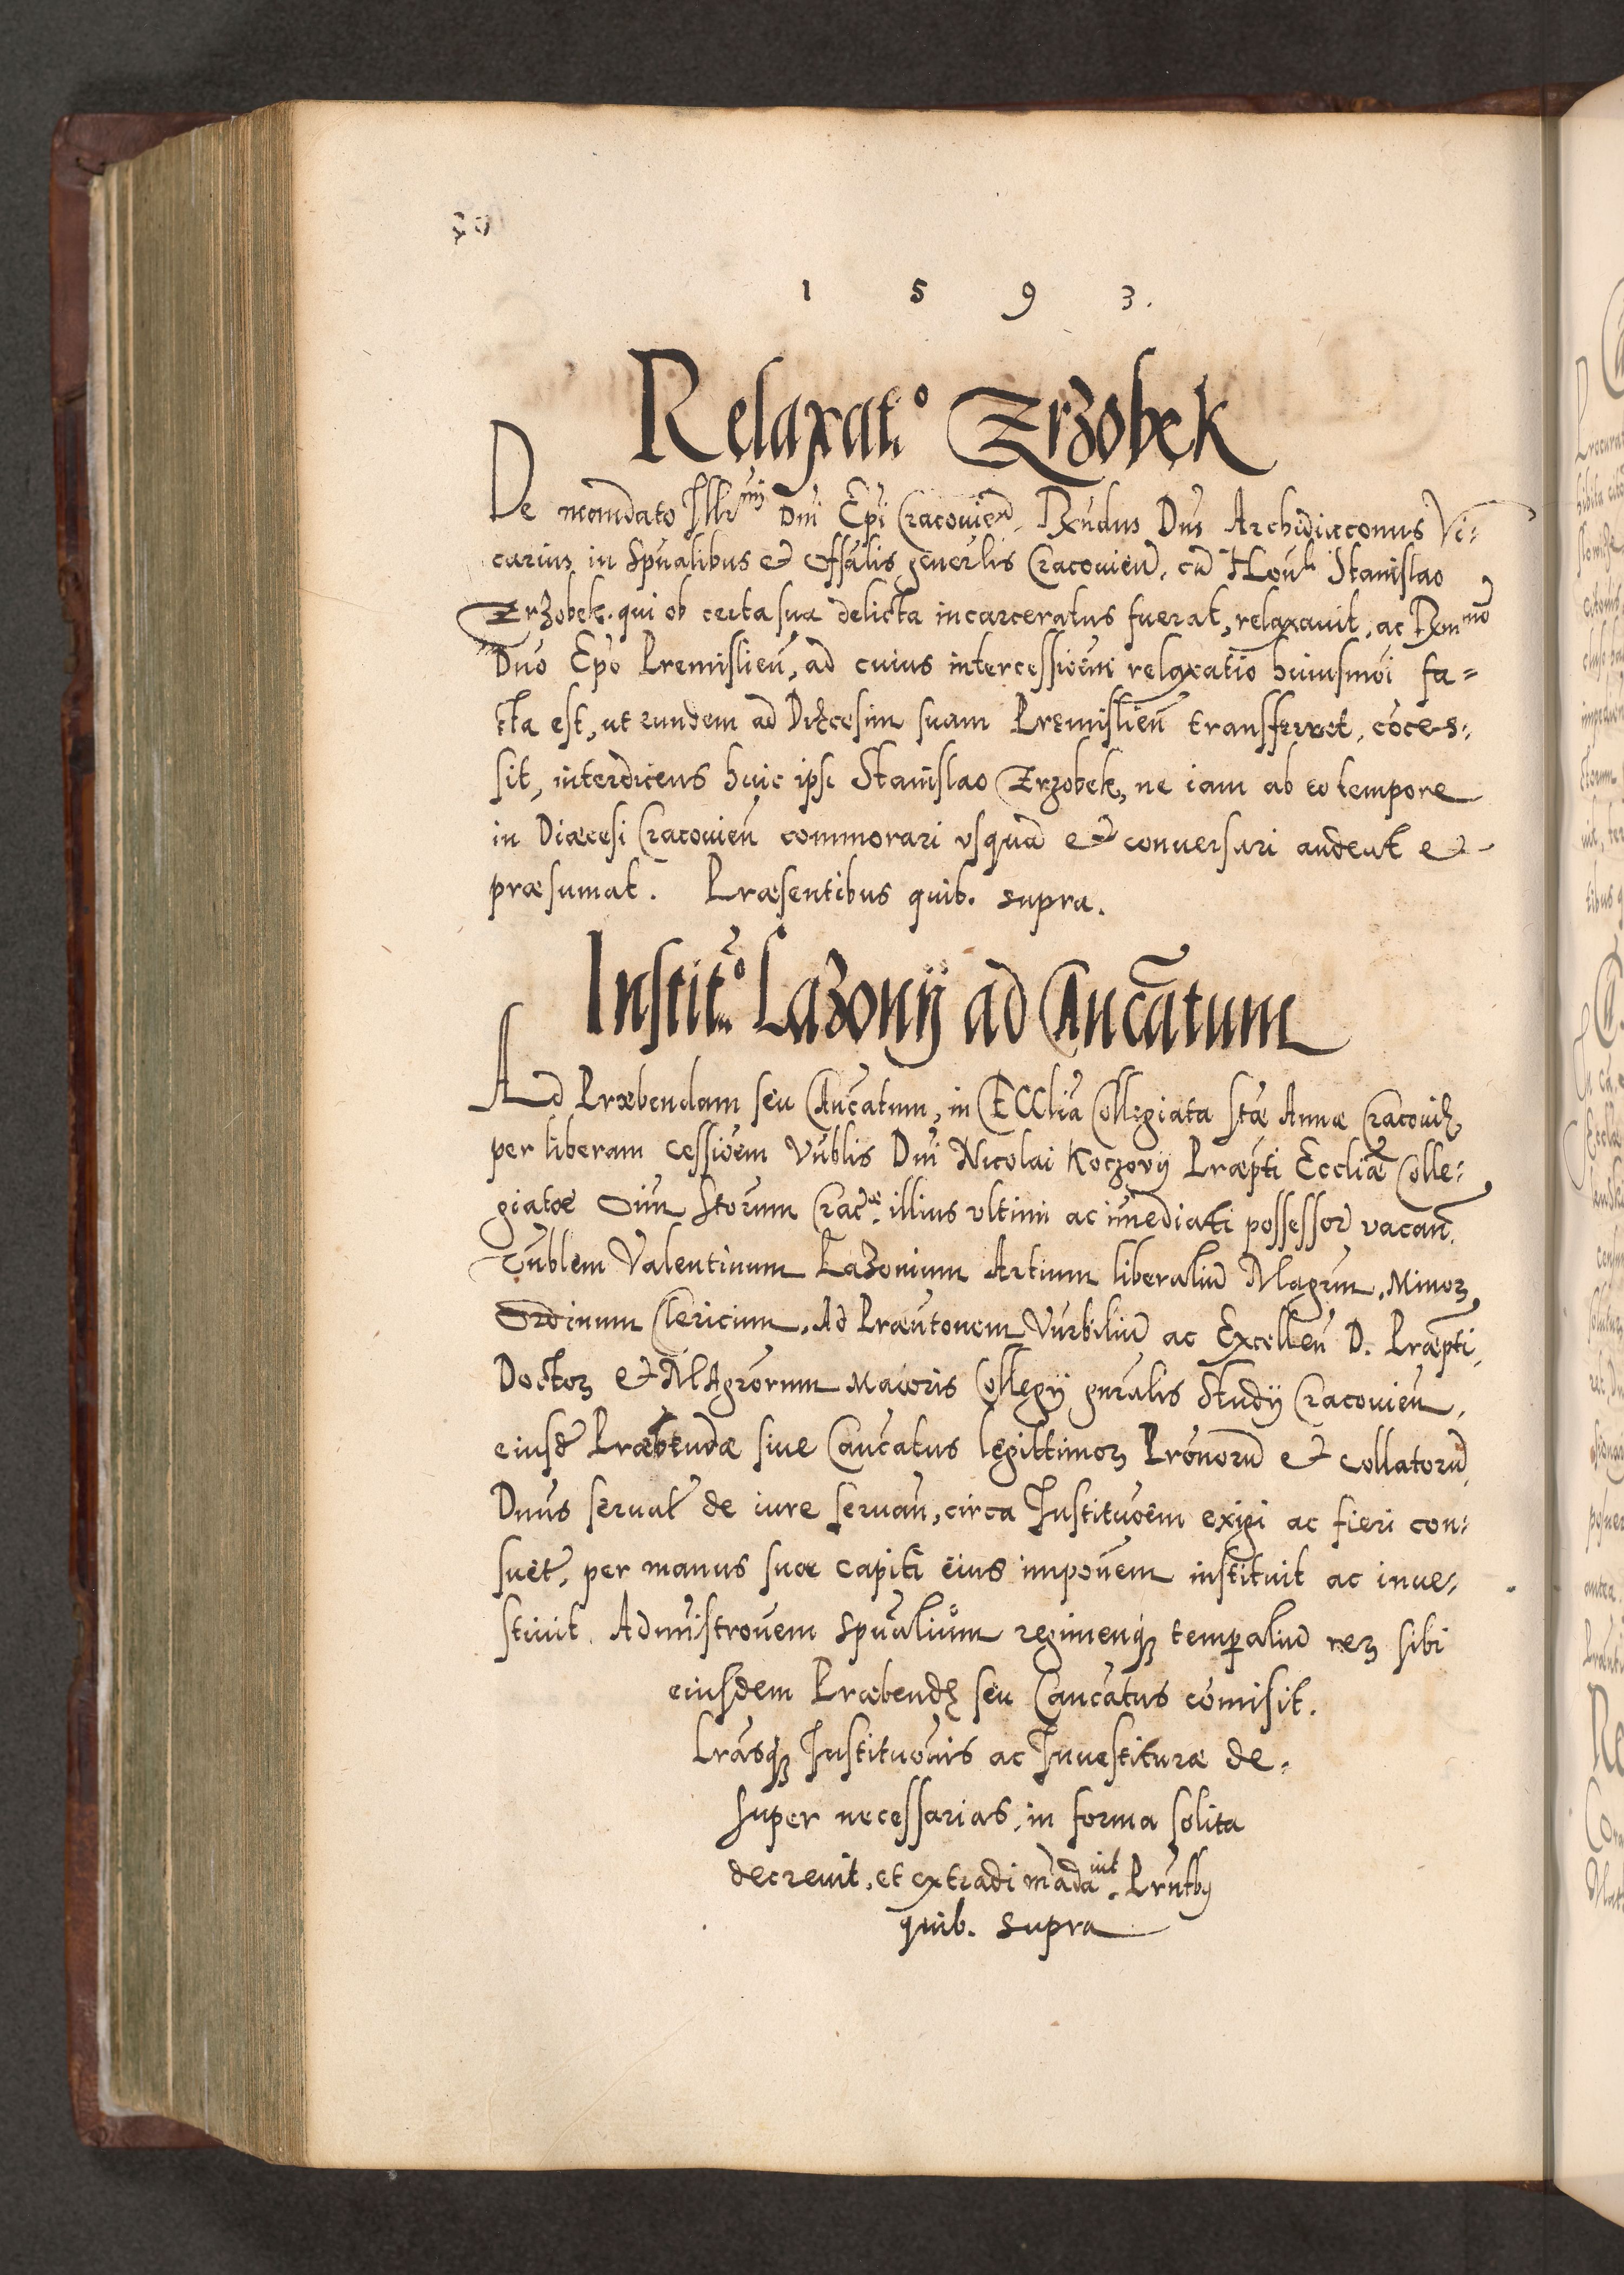 1 5 9 3.
Relaxat.º Zrzobek
De mandato Illr̃mi Dni Epi Cracovień. Rx̃ndus Dns Archidiaconus Vi-
carius in Spũalibus et Offãlis genẽrlis Cracovień. cũ Honli Stanislao
Zrzobek. qui ob certa sua delicta incarceratus fuerat, relaxavit, ac Rx̃mmo
Dno Epõ Premislień, ad cuius intercessiõem relaxatio huiusmõi fa=
cta est, ut eundem ad Diæcesim suam Premislień transfferret, cõces-
sit, interdicens huic ipsi Stanislao Zrzobek, ne iam ab eo tempore
in Diæcesi Cracovień commorari usquã et conversari audeat et
præsumat. Præsentibus quib. supra.
Instit.º Lazonij ad Cancãtum
Ad Præbendam seu Cancãtum, in Ecclia Collegiata Stæ Annæ Cracovię
per liberam cessiõem Vñblis Dni Nicolai Koczovij Præpti Eccliæ Colle-
giatæ Oim Storum Crac. illius ultimi ac imediati possessor vacań.
Vñblem Valentinum Lazonium Artium liberaliũ Magrm, Minoꝝ
Ordinum Clericum, Ad Præntonem Vnrbiliũ ac Excelleń D. Præpti,
Doctoꝝ et Magrorum Maioris Collegij gnralis Studij Cracovień,
eiusd Præbendæ sive Cancãtus legittimoꝝ Prõnorũ et collatorũ,
Dnus servat de iure servań, circa Instituõem exigi ac fieri con-
suet, per manus suæ capiti eius impoñem instituit ac inve-
stivit. Admistrõnem Spũalium regimenqꝫ tempãliũ reꝝ sibi
eiusdem Præbendę seu Cancãtus cõmisit.
Lrãsqꝫ Instituõnis ac Investituræ de-
super necessarias, in forma solita
decrevit, et extradi mãdavit. Prñtbȝ
quib. supra